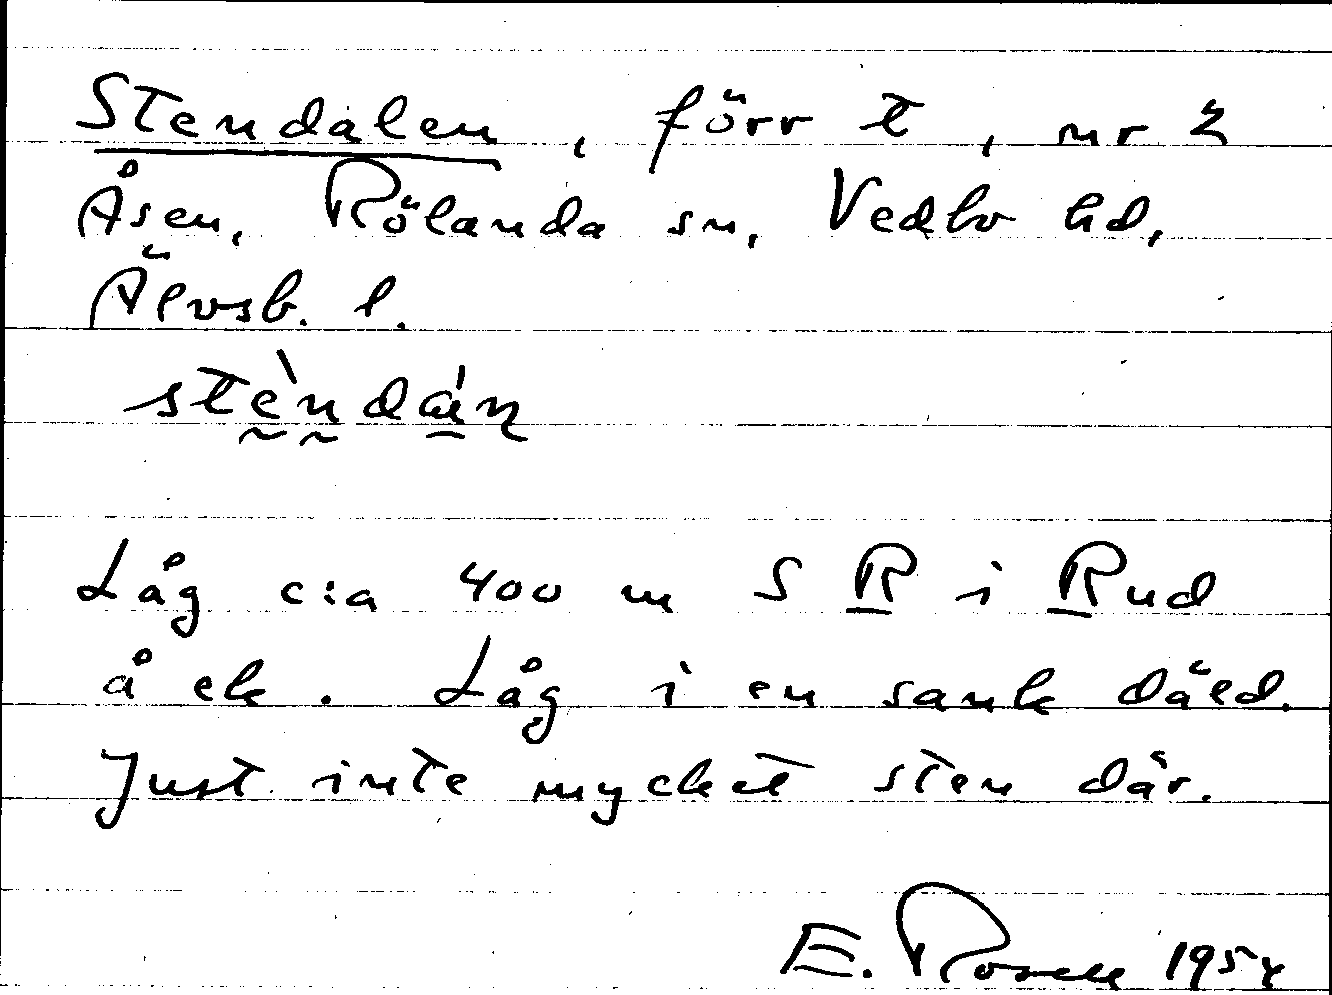 Stendalen, förr t, nr 2
Åsen, Rölanda sn, Vedbo hd,
Älvsb. l.
stèndáɳ
Låg c:a 400 m S R i Rud
å ek. Låg i en sank däld.
Just inte mycket sten där.
E. Rosell 1954